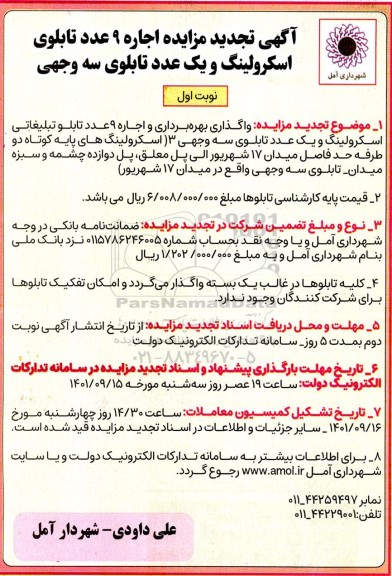 آگهی تجدید مزایده اجاره ۹ عدد تابلوی
اسکرولینگ و یک عدد تابلوی سه وجهی
شهرداری آمل
نوبت اول
۱_ موضوع تجدید مزایده: واگذاری بهره‌برداری و اجاره ۹عدد تابلو تبلیغاتی
اسکرولینگ و یک عدد تابلوی سه وجهی ۳( اسکرولینگ های پایه کوتاه دو
طرفه حد فاصل میدان ۱۷ شهریور الی پل معلق، پل دوازده چشمه و سبزه
میدان_ تابلوی سه وجهی واقع در میدان ۱۷ شهریور)
۲_ قیمت پایه کارشناسی تابلوها مبلغ ۶/۰۰۸/۰۰۰/۰۰۰ ریال می باشد.
۳_ نوع و مبلغ تضمین شرکت در تجدید مزایده: ضمانت‌نامه بانکی در وجه
شهرداری آمل و یا وجه نقد بحساب شماره ۰۱۱۵۷۸۶۲۴۶۰۰۵ نزد بانک ملی
بنام شهرداری آمل و به مبلغ ۱/۲۰۲/۰۰۰/۰۰۰ ریال
۴_ کلیه تابلوها در غالب یک بسته واگذار می‌گردد و امکان تفکیک تابلوها
برای شرکت کنندگان وجود ندارد.
ParsNamadData
۵_ مهلت و محل دریافت اسناد تجدید مزایده: از تاریخ انتشار آگهی نوبت
دوم بمدت ۵ روز_ سامانه تدارکات الکترونیک دولت
۰۲۱-۸۸۳۴۹۶۷۰-۵
۶_ تاریخ مهلت بارگذاری پیشنهاد و اسناد تجدید مزایده در سامانه تدارکات
الکترونیک دولت: ساعت ۱۹ عصر روز سه‌شنبه مورخه ۱۴۰۱/۰۹/۱۵
۷_ تاریخ تشکیل کمیسیون معاملات: ساعت ۱۴/۳۰ روز چهارشنبه مورخ
۱۴۰۱/۰۹/۱۶ _ سایر جزئیات و اطلاعات در اسناد تجدید مزایده قید شده است.
۸_ برای اطلاعات بیشتر به سامانه تدارکات الکترونیک دولت و یا سایت
شهرداری آمل www.amol.ir رجوع گردد.
نمابر ۴۴۲۵۹۴۹۷_۰۱۱
تلفن:۴۴۲۲۹۰۰۱_۰۱۱
علی داودی- شهردار آمل